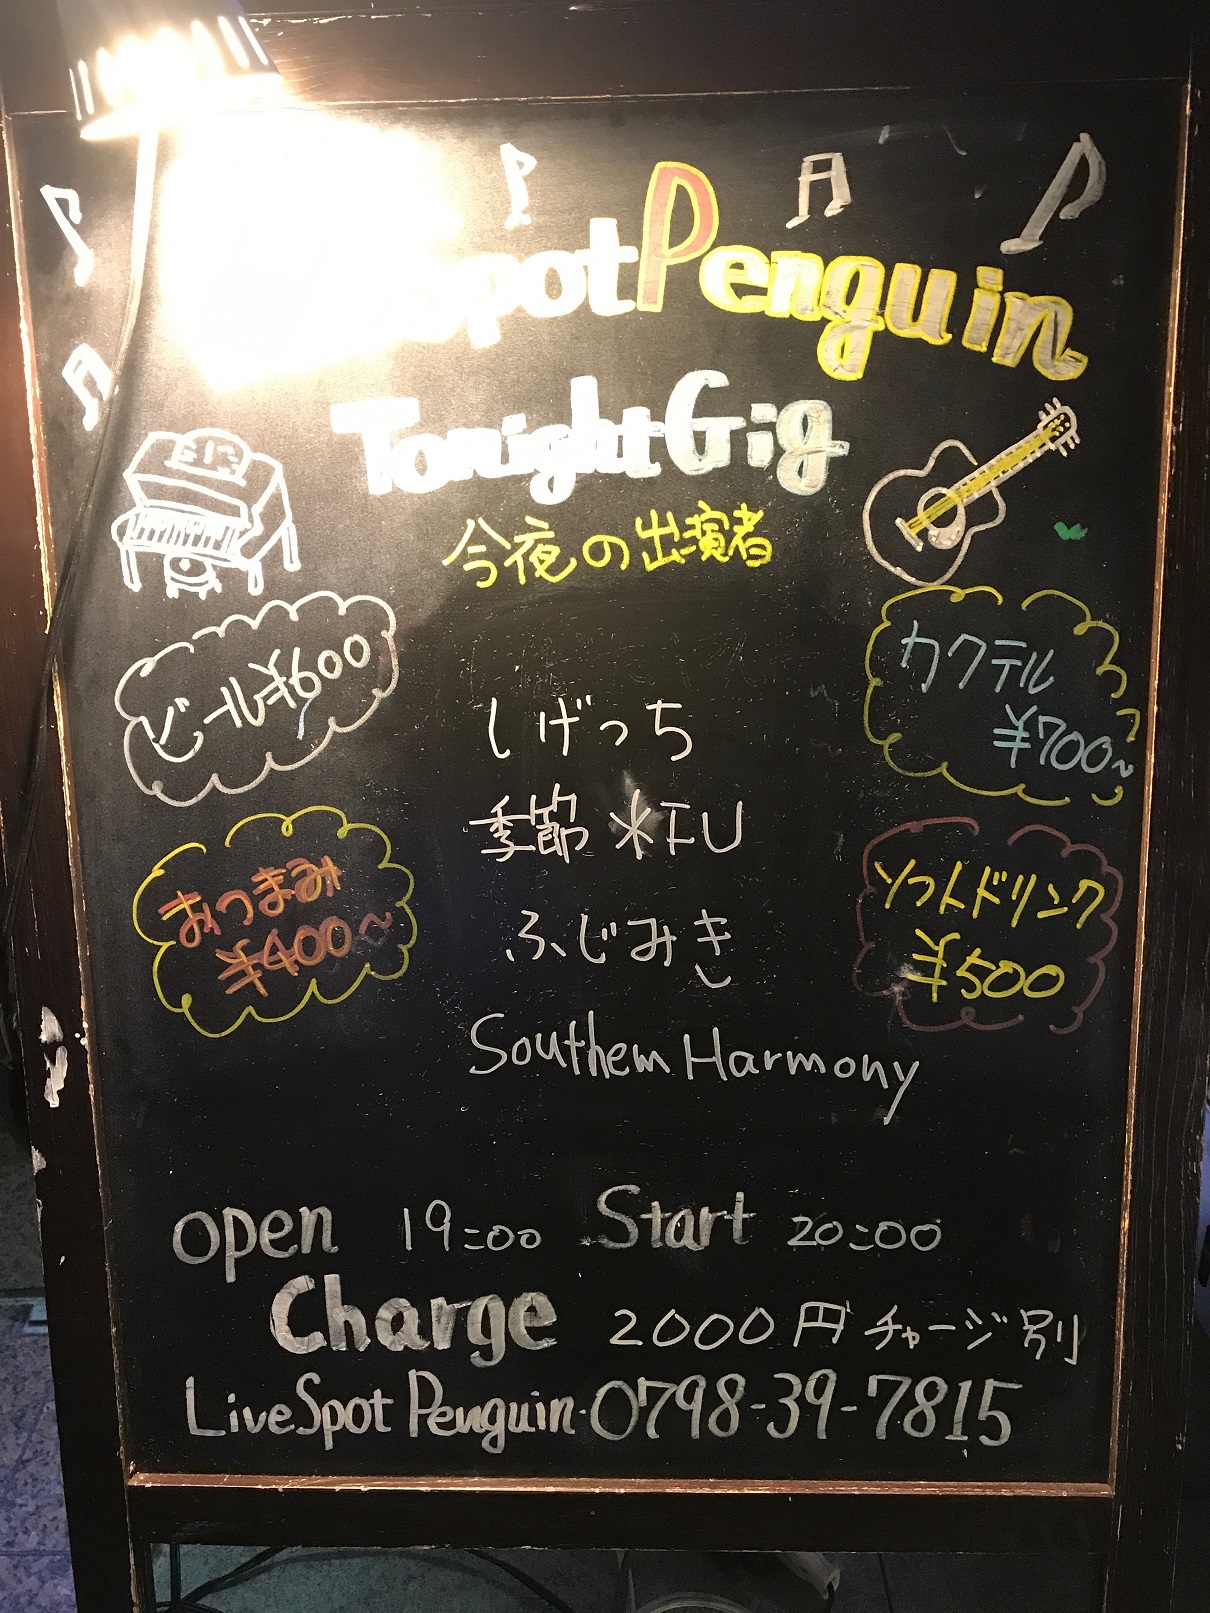 Spot Penguin
Tonight Gig
今夜の出演者
ビール¥600
カクテル
¥700~
しげっち
季節 米FU
おつまみ
¥400~
ソフトドリンク
¥500
ふじみき
Southern Harmony
open 19:00 Start 20:00
Charge 2000円 チャージ別
Live Spot Penguin・0798-39-7815